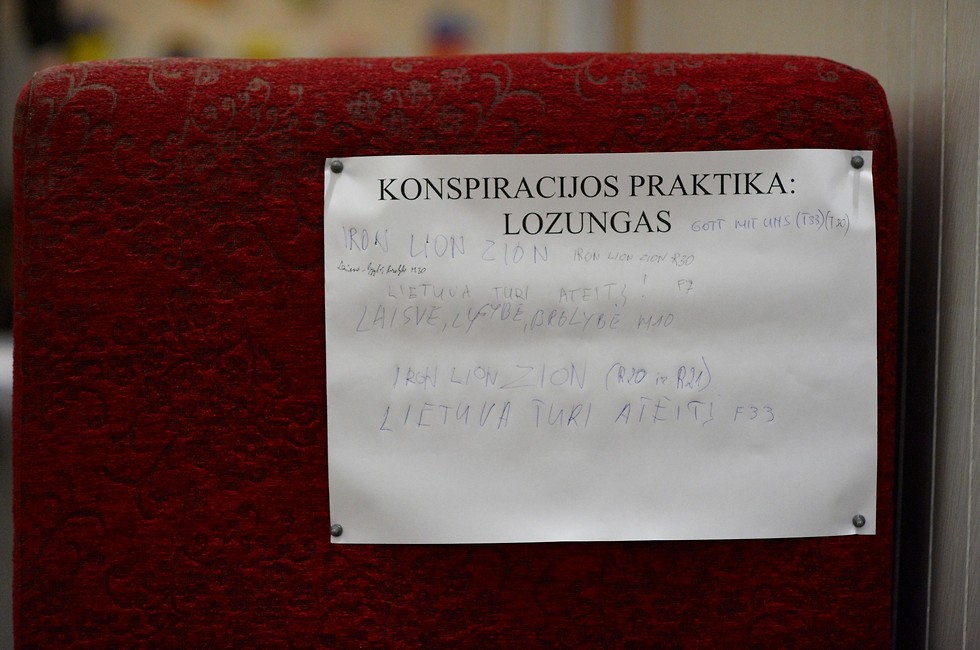 KONSPIRACIJOS PRAKTIKA:
LOZUNGAS
GOTT MIT UNS (T33)(T30)
IRON LION ZION
IRON LION ZION R30
LIETUVA TURI ATEITĮ! F7
LAISVĖ, LYGYBĖ, BROLYBĖ M10
IRON LION ZION (R20 ir R21)
LIETUVA TURI ATEITĮ F33